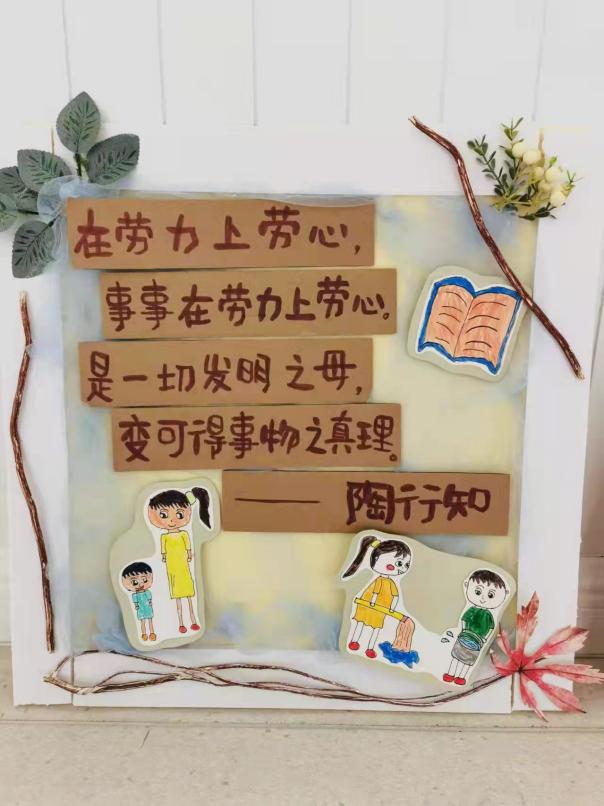 在劳力上劳心，
事事在劳力上劳心。
是一切发明之母，
变可得事物之真理。
—— 陶行知